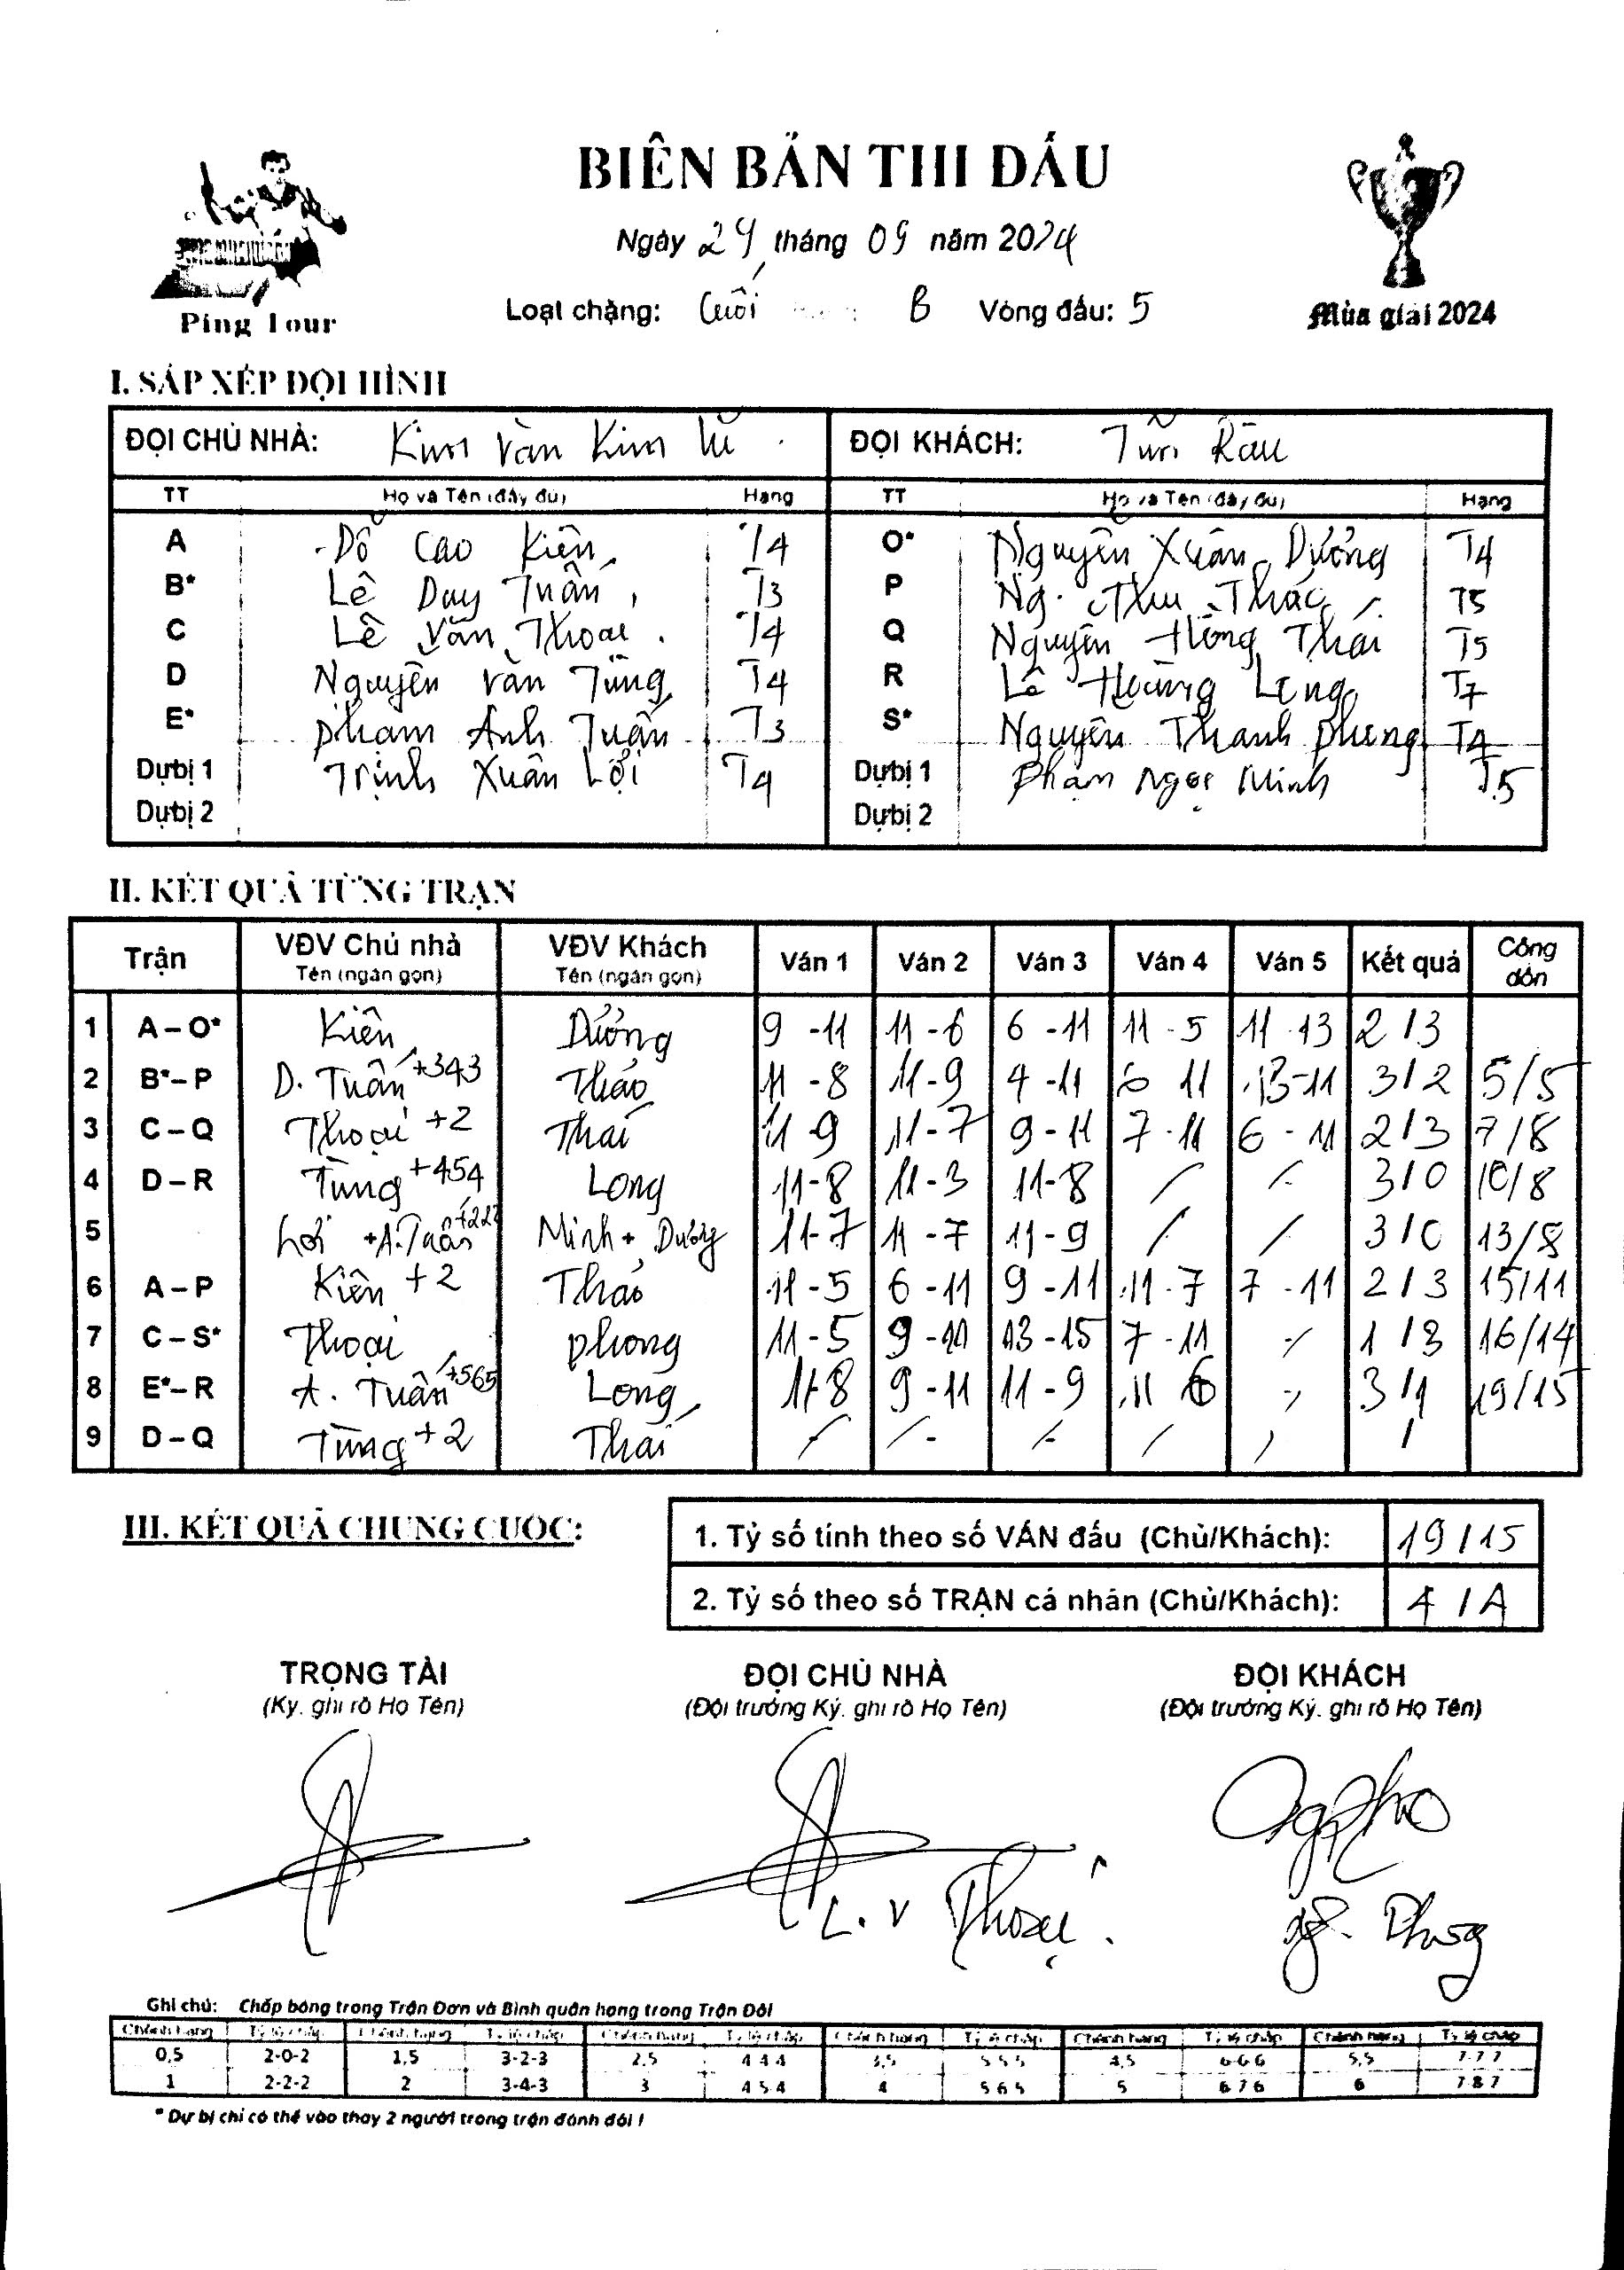 BIÊN BẢN THI ĐẤU
Ngày 24 tháng 09 năm 2024
Loại chặng: Cuối B Vòng đấu: 5
Ping Tour
Mùa giải 2024
I. SẮP XẾP ĐỘI HÌNH
ĐỘI CHỦ NHÀ: Kim Vàn Kim Lũ ĐỘI KHÁCH: Tửu Rầu
TT Họ và Tên (đầy đủ) Hạng TT Họ và Tên (đầy đủ) Hạng
A Đỗ Cao Kiên T4 O* Nguyễn Xuân Dưởng T4
B* Lê Duy Tuấn T3 P Ng. Thu Thảo T5
C Lê Văn Thoại T4 Q Nguyễn Hồng Thái T5
D Nguyễn Văn Tùng T4 R Lê Hoàng Long T7
E* Phạm Anh Tuấn T3 S* Nguyễn Thanh Phong T4
Dự bị 1 Trịnh Xuân Lợi T4 Dự bị 1 Phạm Ngọc Minh T5
Dự bị 2 Dự bị 2
II. KẾT QUẢ TỪNG TRẬN
Trận VĐV Chủ nhà VĐV Khách Ván 1 Ván 2 Ván 3 Ván 4 Ván 5 Kết quả Công dồn
Tên (ngắn gọn) Tên (ngắn gọn)
1 A – O* Kiên Dưởng 9 - 11 11 - 6 6 - 11 11 - 5 11 - 13 2 / 3
2 B* – P D. Tuấn +343 Thảo 11 - 8 11 - 9 4 - 11 6 11 13 - 11 3 / 2 5/5
3 C – Q Thoại +2 Thái 11 - 9 11 - 7 9 - 11 7 - 11 6 - 11 2 / 3 7/8
4 D – R Tùng +454 Long 11 - 8 11 - 3 11 - 8 / / 3 / 0 10/8
5 Lợi + A. Tuấn +222 Minh + Dưởng 11 - 7 11 - 7 11 - 9 / / 3 / 0 13/8
6 A – P Kiên +2 Thảo 11 - 5 6 - 11 9 - 11 11 - 7 7 - 11 2 / 3 15/11
7 C – S* Thoại Phong 11 - 5 9 - 11 13 - 15 7 - 11 / 1 / 3 16/14
8 E* – R A. Tuấn +565 Long 11 - 8 9 - 11 11 - 9 11 6 / 3 / 1 19/15
9 D – Q Tùng +2 Thái / / / / / /
III. KẾT QUẢ CHUNG CUỘC:
1. Tỷ số tính theo số VÁN đấu (Chủ/Khách): 19 / 15
2. Tỷ số theo số TRẬN cá nhân (Chủ/Khách): 4 / 4
TRỌNG TÀI ĐỘI CHỦ NHÀ ĐỘI KHÁCH
(Ký, ghi rõ Họ Tên) (Đội trưởng Ký, ghi rõ Họ Tên) (Đội trưởng Ký, ghi rõ Họ Tên)
L. V Thoại
Phong
Ghi chú: Chấp bóng trong Trận Đơn và Bình quân hạng trong Trận Đôi
Chênh hạng Tỷ lệ chấp Chênh hạng Tỷ lệ chấp Chênh hạng Tỷ lệ chấp Chênh hạng Tỷ lệ chấp Chênh hạng Tỷ lệ chấp Chênh hạng Tỷ lệ chấp
0,5 2-0-2 1,5 3-2-3 2,5 4 4 4 3,5 5 5 5 4,5 6-6-6 5,5 7-7-7
1 2-2-2 2 3-4-3 3 4 5 4 4 5 6 5 5 6 7 6 6 7 8 7
* Dự bị chỉ có thể vào thay 2 người trong trận đánh đôi !